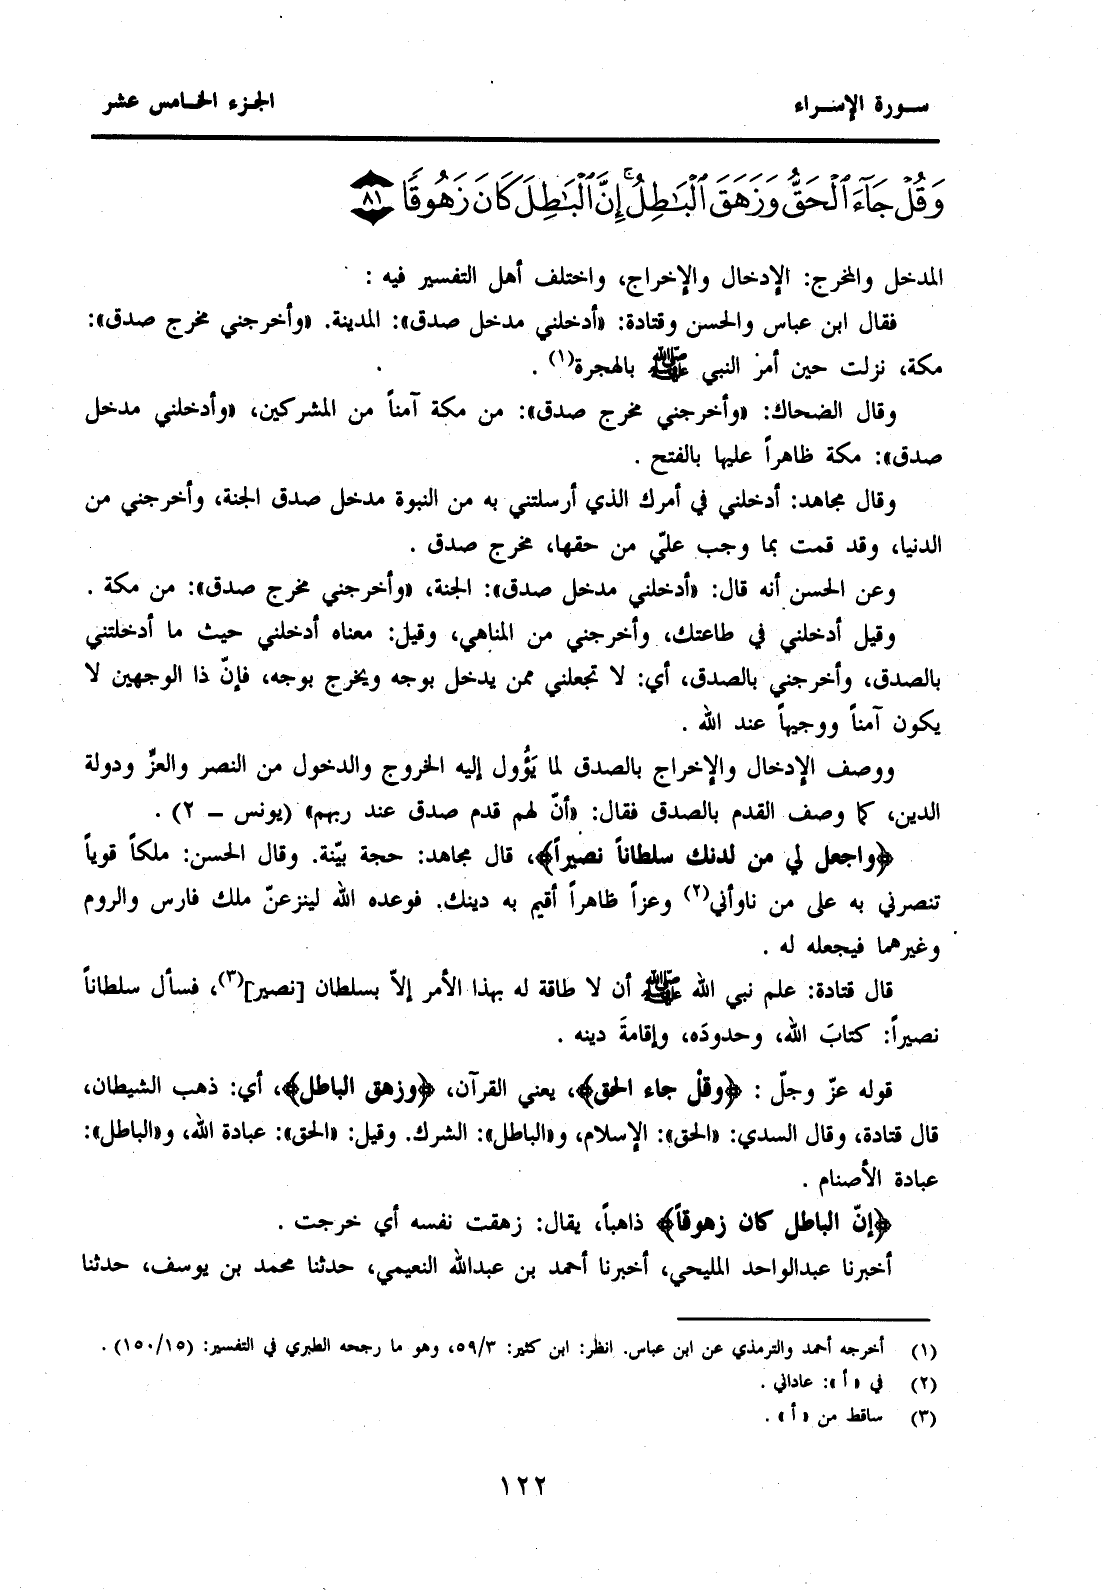 سورة الإسراء
الجزء الخامس عشر
وَقُلْ جَآءَ ٱلْحَقُّ وَزَهَقَ ٱلْبَـٰطِلُ ۚ إِنَّ ٱلْبَـٰطِلَ كَانَ زَهُوقًا ٨١
المدخل والمخرج: الإدخال والإخراج، واختلف أهل التفسير فيه :
فقال ابن عباس والحسن وقتادة: «أدخلني مدخل صدق»: المدينة. «وأخرجني مخرج صدق»:
مكة، نزلت حين أمر النبي ﷺ بالهجرة(١) .
وقال الضحاك: «وأخرجني مخرج صدق»: من مكة آمناً من المشركين، «وأدخلني مدخل
صدق»: مكة ظاهراً عليها بالفتح .
وقال مجاهد: أدخلني في أمرك الذي أرسلتني به من النبوة مدخل صدق الجنة، وأخرجني من
الدنيا، وقد قمت بما وجب عليّ من حقها، مخرج صدق .
وعن الحسن أنه قال: «أدخلني مدخل صدق»: الجنة، «وأخرجني مخرج صدق»: من مكة .
وقيل أدخلني في طاعتك، وأخرجني من المناهي، وقيل: معناه أدخلني حيث ما أدخلتني
بالصدق، وأخرجني بالصدق، أي: لا تجعلني ممن يدخل بوجه ويخرج بوجه، فإنّ ذا الوجهين لا
يكون آمناً ووجيهاً عند الله .
ووصف الإدخال والإخراج بالصدق لما يَؤُول إليه الخروج والدخول من النصر والعزِّ ودولة
الدين، كما وصف القدم بالصدق فقال: «أنّ لهم قدم صدق عند ربهم» (يونس – ٢) .
﴿واجعل لي من لدنك سلطاناً نصيراً﴾، قال مجاهد: حجة بيّنة. وقال الحسن: ملكاً قوياً
تنصرني به على من ناوأني(٢) وعزاً ظاهراً أقيم به دينك. فوعده الله لينزعنّ ملك فارس والروم
وغيرهما فيجعله له .
قال قتادة: علم نبي الله ﷺ أن لا طاقة له بهذا الأمر إلاّ بسلطان [نصير](٣)، فسأل سلطاناً
نصيراً: كتابَ الله، وحدودَه، وإقامةَ دينه .
قوله عزّ وجلّ : ﴿وقلْ جاء الحق﴾، يعني القرآن، ﴿وزهق الباطل﴾، أي: ذهب الشيطان،
قال قتادة، وقال السدي: «الحق»: الإسلام، و«الباطل»: الشرك. وقيل: «الحق»: عبادة الله، و«الباطل»:
عبادة الأصنام .
﴿إنّ الباطل كان زهوقاً﴾ ذاهباً، يقال: زهقت نفسه أي خرجت .
أخبرنا عبدالواحد المليحي، أخبرنا أحمد بن عبدالله النعيمي، حدثنا محمد بن يوسف، حدثنا
(١) أخرجه أحمد والترمذي عن ابن عباس. انظر: ابن كثير: ٥٩/٣، وهو ما رجحه الطبري في التفسير: (١٥٠/١٥) .
(٢) في «أ»: عاداني .
(٣) ساقط من «أ» .
١٢٢